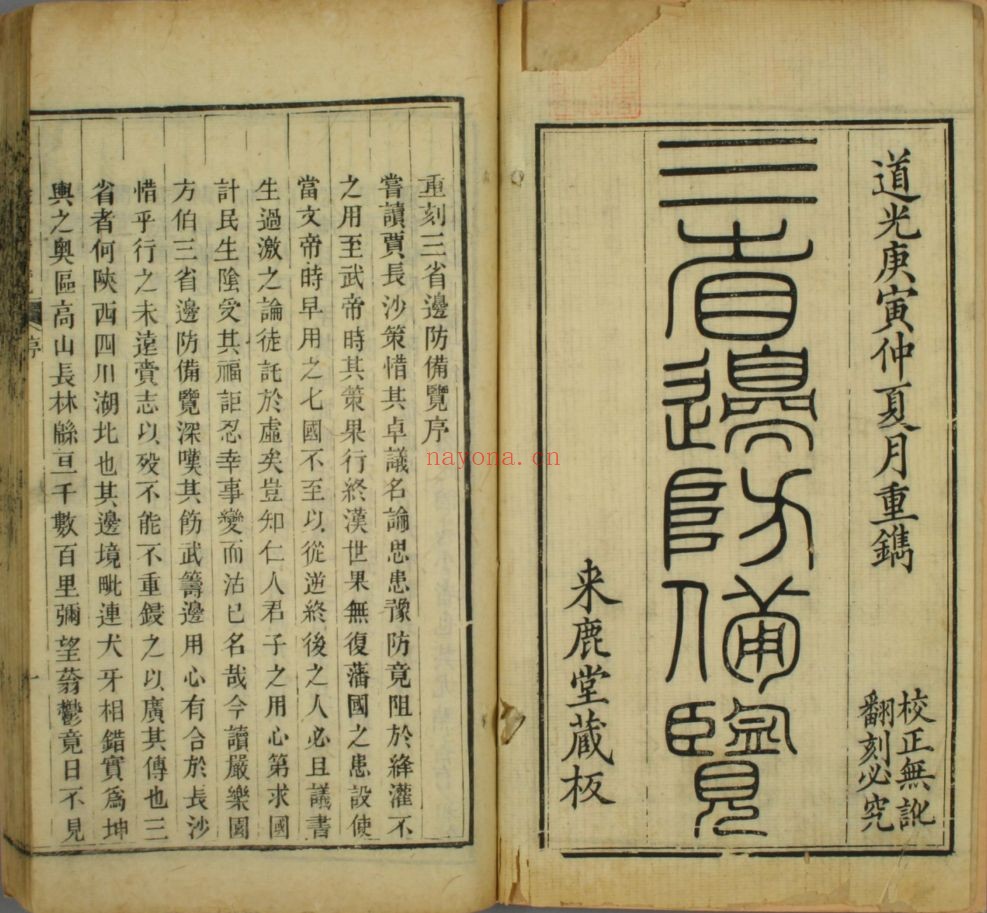 道光庚寅仲夏月重鐫
校正無訛
翻刻必究
三省邊防備覽
来鹿堂藏板
重刻三省邊防備覽序
嘗讀賈長沙策惜其卓議名論思患豫防竟阻於絳灌不
之用至武帝時其策果行終漢世果無復藩國之患設使
當文帝時早用之七國不至以從逆終後之人必且議書
生過激之論徒託於虛矣豈知仁人君子之用心第求國
計民生陰受其福詎忍幸事變而沽已名哉今讀嚴樂園
方伯三省邊防備覽深嘆其飭武籌邊用心有合於長沙
惜乎行之未遠賫志以殁不能不重鋟之以廣其傳也三
省者何陝西四川湖北也其邊境毗連犬牙相錯實爲坤
輿之奥區高山長林緜亘千數百里彌望蓊鬱竟日不見
序
一
nayona.cn